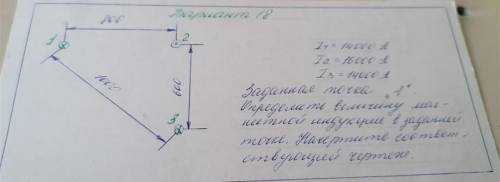 Вариант 18
800
1
2
1000
600
3
I₁ = 14000 А
I₂ = 16000 А
I₃ = 14000 А
Заданная точка „1“.
Определить величину маг-
нитной индукции в заданной
точке. Начертите соответ-
ствующий чертеж.